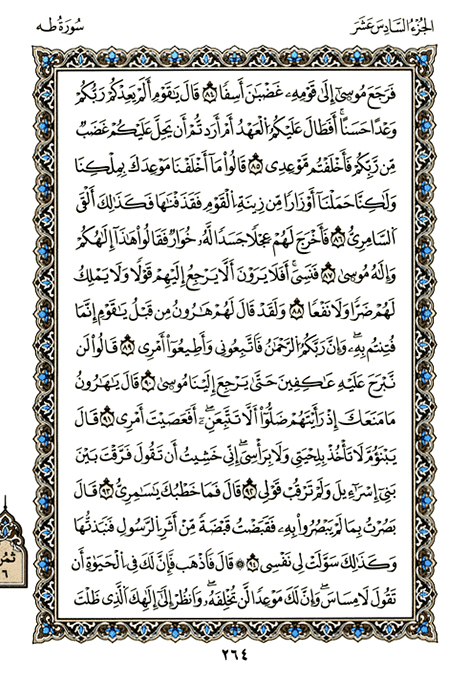 الجُزْءُ السَّادِسَ عَشَرَ
سُورَةُ طه
فَرَجَعَ مُوسَىٰٓ إِلَىٰ قَوْمِهِۦ غَضْبَٰنَ أَسِفًا ٨٤ قَالَ يَٰقَوْمِ أَلَمْ يَعِدْكُمْ رَبُّكُمْ
وَعْدًا حَسَنًا أَفَطَالَ عَلَيْكُمُ الْعَهْدُ أَمْ أَرَدتُّمْ أَن يَحِلَّ عَلَيْكُمْ غَضَبٌ
مِّن رَّبِّكُمْ فَأَخْلَفْتُم مَّوْعِدِى ٨٥ قَالُوا مَآ أَخْلَفْنَا مَوْعِدَكَ بِمَلْكِنَا
وَلَٰكِنَّا حَمَلْنَآ أَوْزَارًا مِّن زِينَةِ الْقَوْمِ فَقَذَفْنَٰهَا فَكَذَٰلِكَ أَلْقَى
السَّامِرِىُّ ٨٦ فَأَخْرَجَ لَهُمْ عِجْلًا جَسَدًا لَّهُۥ خُوَارٌ فَقَالُوا هَٰذَآ إِلَٰهُكُمْ
وَإِلَٰهُ مُوسَىٰ ٨٧ فَنَسِىَ أَفَلَا يَرَوْنَ أَلَّا يَرْجِعُ إِلَيْهِمْ قَوْلًا وَلَا يَمْلِكُ
لَهُمْ ضَرًّا وَلَا نَفْعًا ٨٨ وَلَقَدْ قَالَ لَهُمْ هَٰرُونُ مِن قَبْلُ يَٰقَوْمِ إِنَّمَا
فُتِنتُم بِهِۦ وَإِنَّ رَبَّكُمُ الرَّحْمَٰنُ فَاتَّبِعُونِى وَأَطِيعُوٓا أَمْرِى ٨٩ قَالُوا لَن
نَّبْرَحَ عَلَيْهِ عَٰكِفِينَ حَتَّىٰ يَرْجِعَ إِلَيْنَا مُوسَىٰ ٩٠ قَالَ يَٰهَٰرُونُ
مَا مَنَعَكَ إِذْ رَأَيْتَهُمْ ضَلُّوٓا أَلَّا تَتَّبِعَنِۦٓ أَفَعَصَيْتَ أَمْرِى ٩١ قَالَ
يَبْنَؤُمَّ لَا تَأْخُذْ بِلِحْيَتِى وَلَا بِرَأْسِىَ إِنِّى خَشِيتُ أَن تَقُولَ فَرَّقْتَ بَيْنَ
بَنِىٓ إِسْرَٰٓءِيلَ وَلَمْ تَرْقُبْ قَوْلِى ٩٢ قَالَ فَمَا خَطْبُكَ يَٰسَٰمِرِىُّ ٩٣ قَالَ
بَصُرْتُ بِمَا لَمْ يَبْصُرُوا بِهِۦ فَقَبَضْتُ قَبْضَةً مِّنْ أَثَرِ الرَّسُولِ فَنَبَذْتُهَا
وَكَذَٰلِكَ سَوَّلَتْ لِى نَفْسِى ٩٤ ۞ قَالَ فَاذْهَبْ فَإِنَّ لَكَ فِى الْحَيَوٰةِ أَن
تَقُولَ لَا مِسَاسَ وَإِنَّ لَكَ مَوْعِدًا لَّن تُخْلَفَهُۥ وَانظُرْ إِلَىٰٓ إِلَٰهِكَ الَّذِى ظَلْتَ
ثمن
٦
٢٦٤